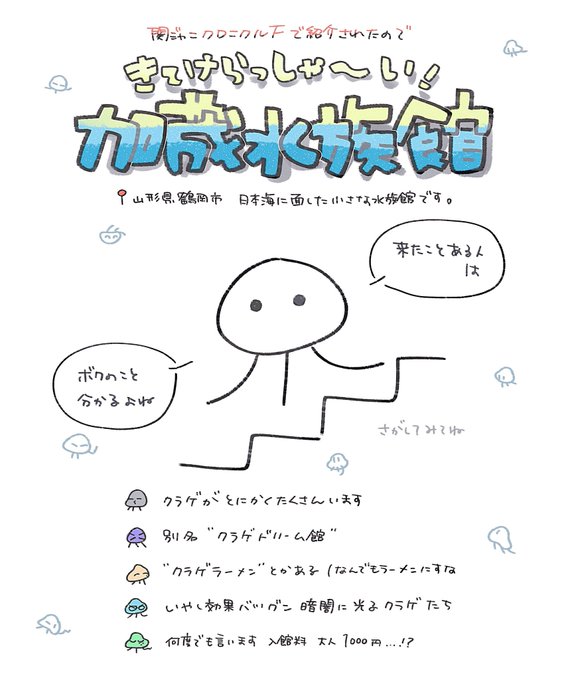 関ジャニクロニクルFで紹介されたので
きてけらっしゃ〜い!
加茂水族館
山形県鶴岡市 日本海に面した小さな水族館です。
来たことある人
は
ボクのこと
分かるよね
さがしてみてね
クラゲがとにかくたくさんいます
別名"クラゲドリーム館"
"クラゲラーメン"とかある(なんでもラーメンにすな
いやし効果バツグン 暗闇に光るクラゲたち
何度でも言います 入館料 大人1000円...!?